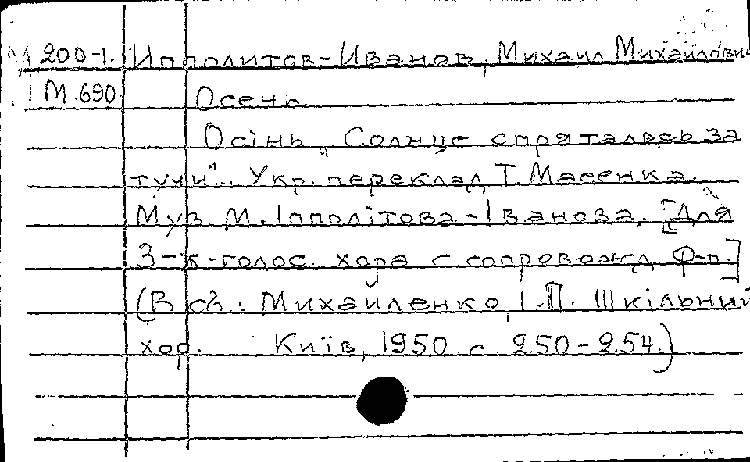 М 200-1. Ипполитов-Иванов, Михаил Михайлович
М.690. Осень
Осінь. „Солнце спряталось за
тучи". Укр. переклад Т. Масенка.
Муз. М. Іпполітова-Іванова. [Для
3-х-голос. хора с сопровожд. ф-п.]
(В сб.: Михайленко, І. П. Шкільний
хор. Київ, 1950 с 250-254.)